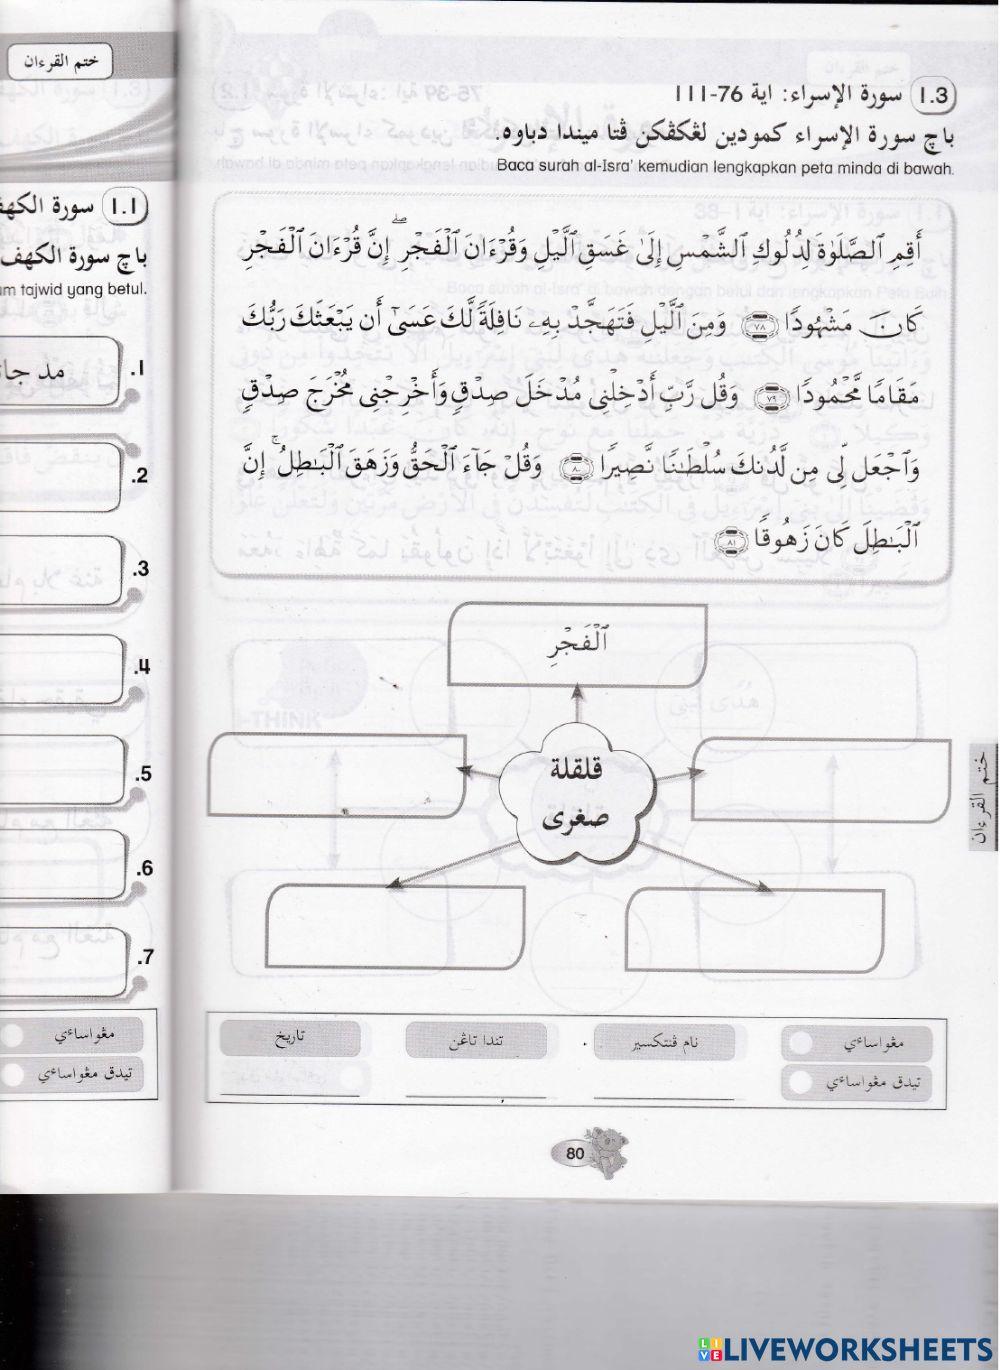 ختم القرءان
1.3 سورة الإسراء: اية 76-111
باچ سورة الإسراء كمودين لڠكڤكن ڤتا ميندا دباوه.
Baca surah al-Isra' kemudian lengkapkan peta minda di bawah.
أَقِمِ ٱلصَّلَوٰةَ لِدُلُوكِ ٱلشَّمْسِ إِلَىٰ غَسَقِ ٱلَّيْلِ وَقُرْءَانَ ٱلْفَجْرِ ۖ إِنَّ قُرْءَانَ ٱلْفَجْرِ
كَانَ مَشْهُودًا ٧٨ وَمِنَ ٱلَّيْلِ فَتَهَجَّدْ بِهِۦ نَافِلَةً لَّكَ عَسَىٰٓ أَن يَبْعَثَكَ رَبُّكَ
مَقَامًا مَّحْمُودًا ٧٩ وَقُل رَّبِّ أَدْخِلْنِى مُدْخَلَ صِدْقٍ وَأَخْرِجْنِى مُخْرَجَ صِدْقٍ
وَٱجْعَل لِّى مِن لَّدُنكَ سُلْطَٰنًا نَّصِيرًا ٨٠ وَقُلْ جَآءَ ٱلْحَقُّ وَزَهَقَ ٱلْبَٰطِلُ ۚ إِنَّ
ٱلْبَٰطِلَ كَانَ زَهُوقًا ٨١
ٱلْفَجْرِ
قلقلة
صغرى
ختم القرءان
مڠواساءي
نام ڤنتكسير
تندا تاڠن
تاريخ
تيدق مڠواساءي
80
ختم القرءان
1.1 سورة الكهف
باچ سورة الكهف
um tajwid yang betul.
1. مد جا
2.
3.
4.
5.
6.
7.
مڠواساءي
تيدق مڠواساءي
LIVEWORKSHEETS